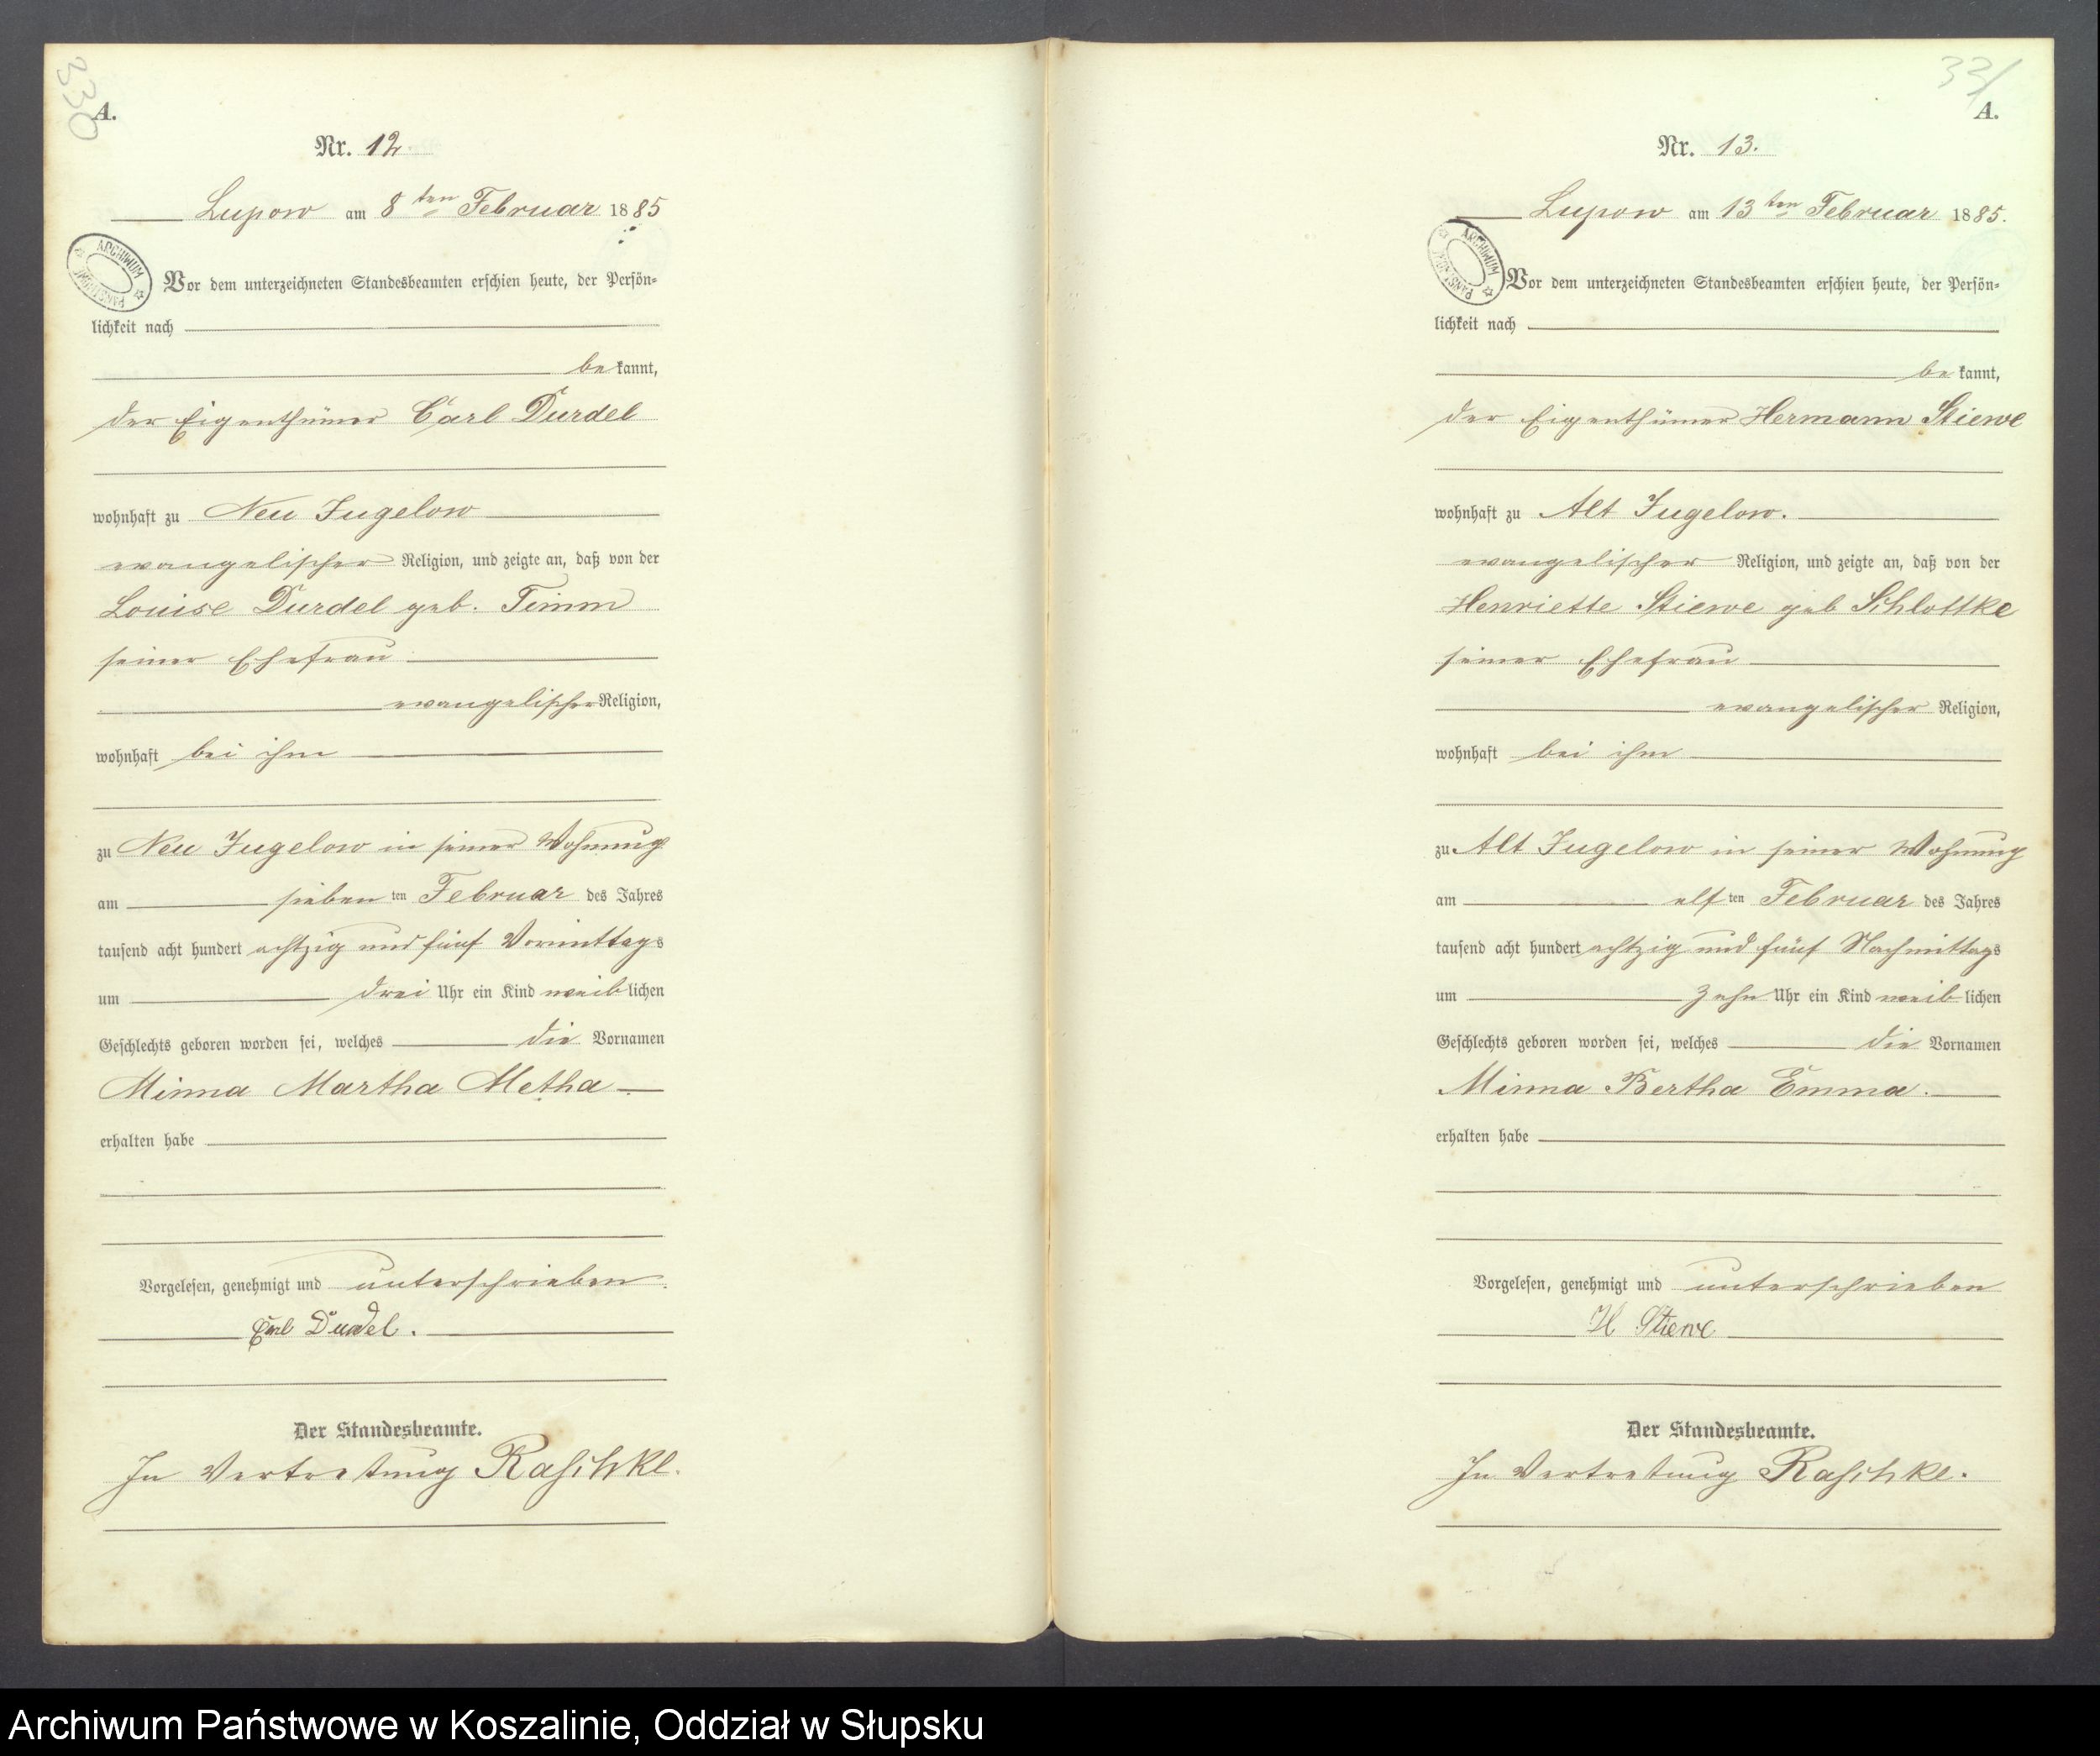 330
A.
Nr. 12.
Lupow am 8ten Februar 1885
ARCHIWUM PAŃSTWOWE
Vor dem unterzeichneten Standesbeamten erschien heute, der Persön=
lichkeit nach
be kannt,
der Eigenthümer Carl Durdel
wohnhaft zu Neu Jugelow
evangelischer Religion, und zeigte an, daß von der
Louise Durdel geb. Timm
seiner Ehefrau
evangelischer Religion,
wohnhaft bei ihm
zu Neu Jugelow in seiner Wohnung
am sieben ten Februar des Jahres
tausend acht hundert achtzig und fünf Vormittags
um drei Uhr ein Kind weib lichen
Geschlechts geboren worden sei, welches die Vornamen
Minna Martha Metha
erhalten habe
Vorgelesen, genehmigt und unterschrieben.
Carl Durdel.
Der Standesbeamte.
In Vertretung Raschke.
331
A.
Nr. 13.
Lupow am 13ten Februar 1885.
ARCHIWUM PAŃSTWOWE
Vor dem unterzeichneten Standesbeamten erschien heute, der Persön=
lichkeit nach
be kannt,
der Eigenthümer Hermann Stiewe
wohnhaft zu Alt Jugelow.
evangelischer Religion, und zeigte an, daß von der
Henriette Stiewe geb Schlottke
seiner Ehefrau
evangelischer Religion,
wohnhaft bei ihm
zu Alt Jugelow in seiner Wohnung
am elf ten Februar des Jahres
tausend acht hundert achtzig und fünf Nachmittags
um zehn Uhr ein Kind weib lichen
Geschlechts geboren worden sei, welches die Vornamen
Minna Bertha Emma.
erhalten habe
Vorgelesen, genehmigt und unterschrieben
H Stiewe
Der Standesbeamte.
In Vertretung Raschke.
Archiwum Państwowe w Koszalinie, Oddział w Słupsku